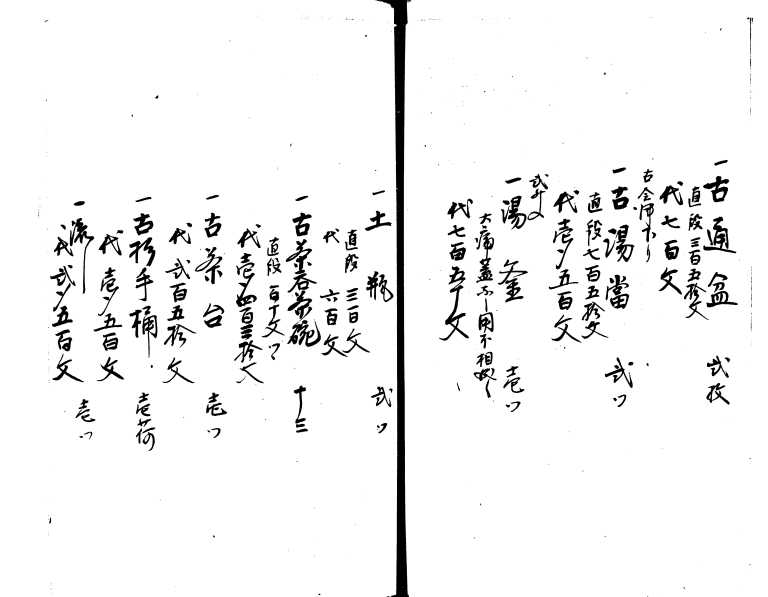 一古通盆 弐枚
直段三百五拾文
代七百文
古金沸下り
一古湯當 弐ツ
直段七百五拾文
代壱〆五百文
一湯釜 壱ツ
大痛蓋なし用不相成
代七百五十文
一土瓶 弐ツ
直段三百文
代六百文
一古茶呑茶碗 十三
直段百十文ツヽ
代壱〆四百三拾文
一古茶台 壱ツ
代弐百五拾文
一古杉手桶 壱荷
代壱〆五百文
一 壱ツ
代弐〆五百文